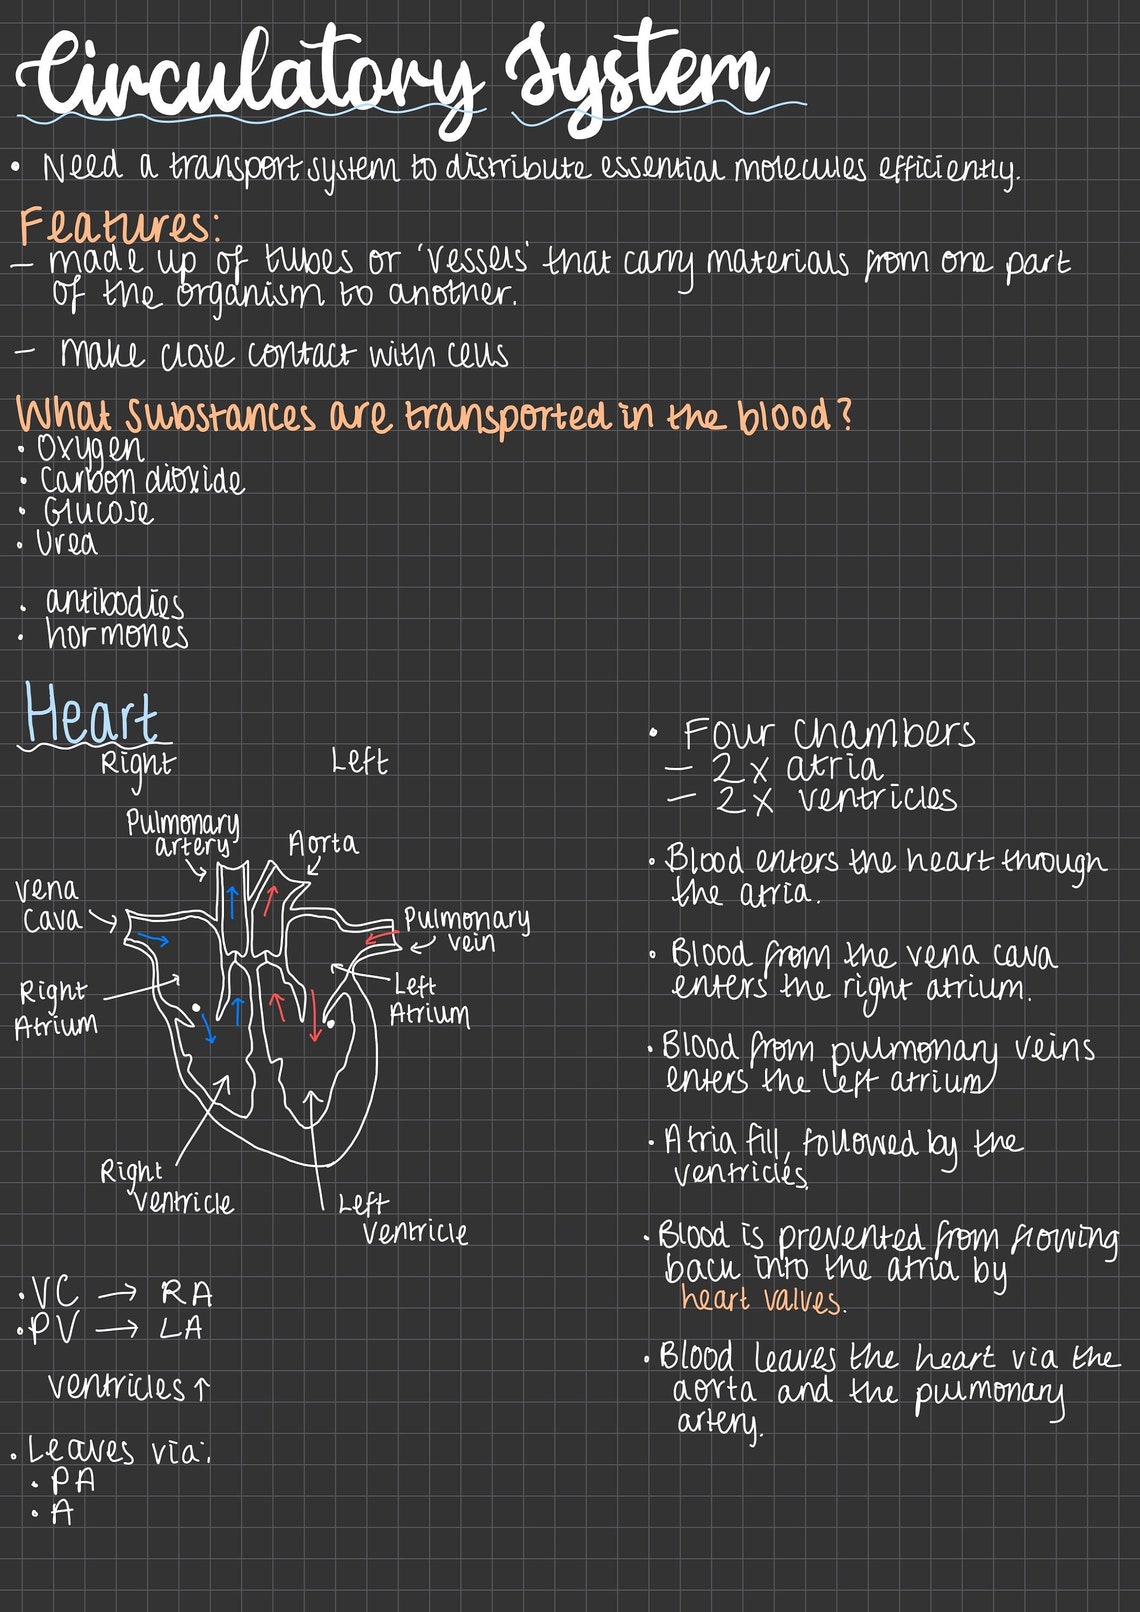 Circulatory System
• Need a transport system to distribute essential molecules efficiently.
Features:
– made up of tubes or 'vessels' that carry materials from one part
of the organism to another.
– make close contact with cells
What substances are transported in the blood?
• Oxygen
• Carbon dioxide
• Glucose
• Urea
• antibodies
• hormones
Heart
Right
Left
Pulmonary
artery
Aorta
vena
cava
Pulmonary
vein
Right
Atrium
Left
Atrium
Right
ventricle
Left
ventricle
• VC → RA
• PV → LA
ventricles ↑
• Leaves via:
• PA
• A
• Four chambers
– 2 x atria
– 2 x ventricles
• Blood enters the heart through
the atria.
• Blood from the vena cava
enters the right atrium.
• Blood from pulmonary veins
enters the left atrium
• Atria fill, followed by the
ventricles.
• Blood is prevented from flowing
back into the atria by
heart valves.
• Blood leaves the heart via the
aorta and the pulmonary
artery.